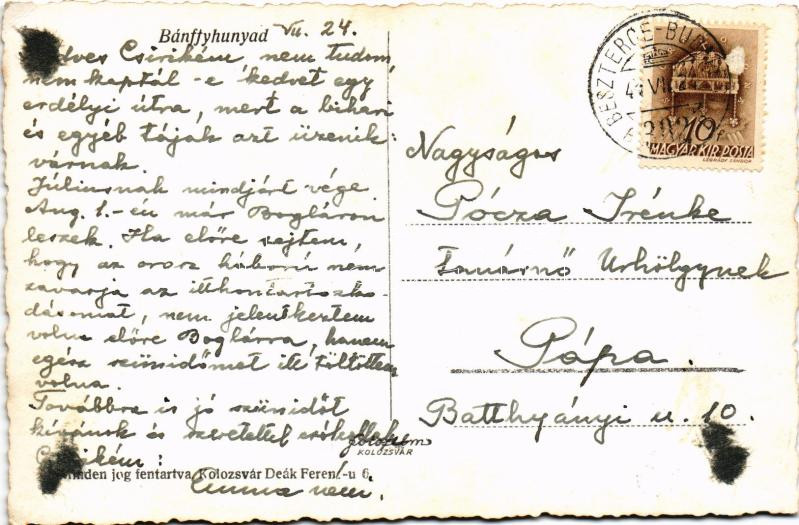 Bánffyhunyad
VII. 24.
Kedves Csirikém, nem tudom
nem kaptál-e kedvet egy
erdélyi útra, mert a bihari
és egyéb tájak azt üzenik:
várnak.
Júliusnak mindjárt vége
Aug. 1.-én már Bogláron
leszek. Ha előre sejtem,
hogy az orosz háború nem
zavarja az itthontartózko-
dásomat, nem jelentkeztem
volna előre Boglárra, hanem
egész szünidőmet itt töltöttem
volna.
Továbbra is jó szünidőt
kívánok és szeretettel csókollak
Csirikém:
Anna néni.
KOLOZSVÁR
Minden jog fentartva, Kolozsvár Deák Ferenc-u 6.
BESZTERCE-BU
41 VII
MAGYAR KIR. POSTA
10f
LÉGRÁDY SÁNDOR
Nagyságos
Pócza Irénke
tanárnő Úrhölgynek
Pápa.
Batthyányi u. 10.